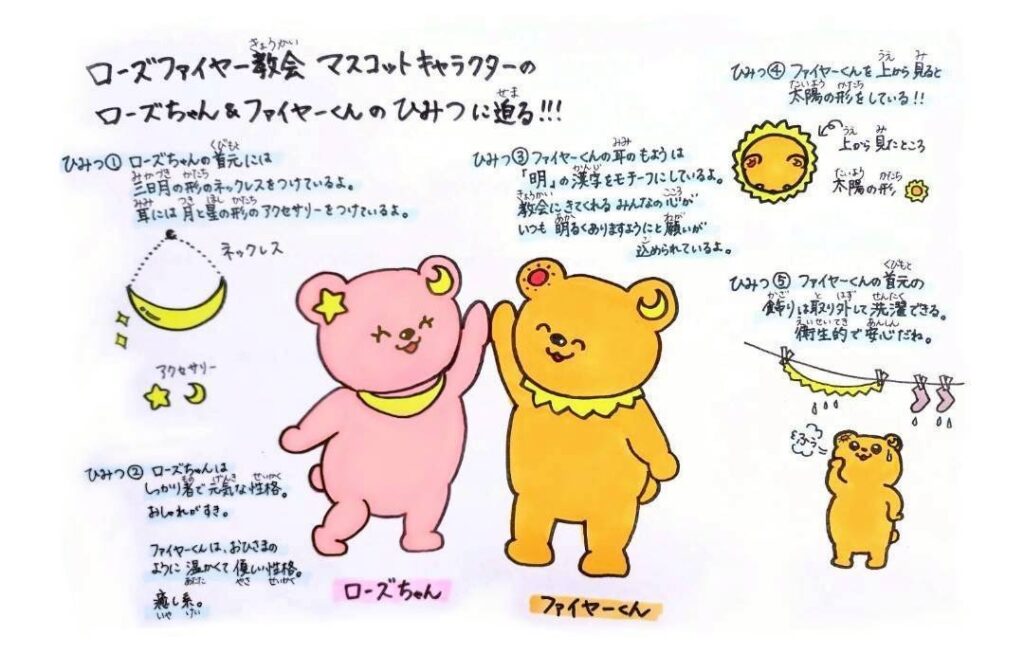 ローズファイヤー教会 マスコットキャラクターの
きょうかい
ローズちゃん&ファイヤーくんのひみつに迫る!!!
せま
ひみつ① ローズちゃんの首元には
くびもと
三日月の形のネックレスをつけているよ。
みかづき かたち
耳には月と星の形のアクセサリーをつけているよ。
みみ つき ほし かたち
ネックレス
アクセサリー
ひみつ② ローズちゃんは
しっかり者で元気な性格。
もの げんき せいかく
おしゃれがすき。
ファイヤーくんは、おひさまの
ように温かくて優しい性格。
あたた やさ せいかく
癒し系。
いや けい
ローズちゃん
ファイヤーくん
ひみつ③ ファイヤーくんの耳のもようは
みみ
「明」の漢字をモチーフにしているよ。
かんじ
教会にきてくれるみんなの心が
きょうかい こころ
いつも明るくありますようにと願いが
あか ねが
込められているよ。
こ
ひみつ④ ファイヤーくんを上から見ると
うえ み
太陽の形をしている!!
たいよう かたち
上から見たところ
うえ み
太陽の形
たいよう かたち
ひみつ⑤ ファイヤーくんの首元の
くびもと
飾りは取り外して洗濯できる。
かざ と はず せんたく
衛生的で安心だね。
えいせいてき あんしん